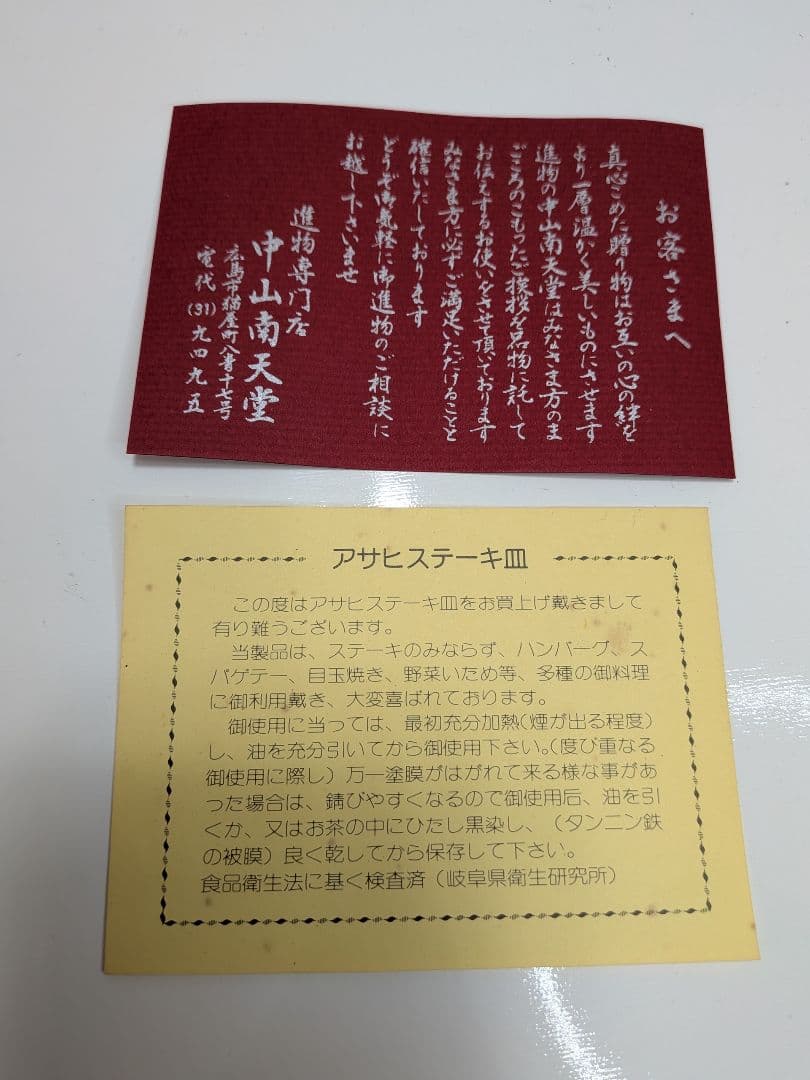 お客さまへ
真心こめた贈り物はお互いの心の絆を
より一層温かく美しいものにさせます
進物の中山南天堂はみなさま方のま
ごころのこもったご挨拶を品物に託して
お伝えするお使いをさせて頂いております
みなさま方に必ずご満足いただけることと
確信いたしております
どうぞ御気軽に御進物のご相談に
お越し下さいませ
進物専門店
中山南天堂
広島市猫屋町八番十七号
電代(31)九四九五
アサヒステーキ皿
この度はアサヒステーキ皿をお買上げ戴きまして
有り難うございます。
当製品は、ステーキのみならず、ハンバーグ、ス
パゲテー、目玉焼き、野菜いため等、多種の御料理
に御利用戴き、大変喜ばれております。
御使用に当っては、最初充分加熱(煙が出る程度)
し、油を充分引いてから御使用下さい。(度び重なる
御使用に際し)万一塗膜がはがれて来る様な事があ
った場合は、錆びやすくなるので御使用后、油を引
くか、又はお茶の中にひたし黒染し、(タンニン鉄
の被膜)良く乾してから保存して下さい。
食品衛生法に基く検査済(岐阜県衛生研究所)